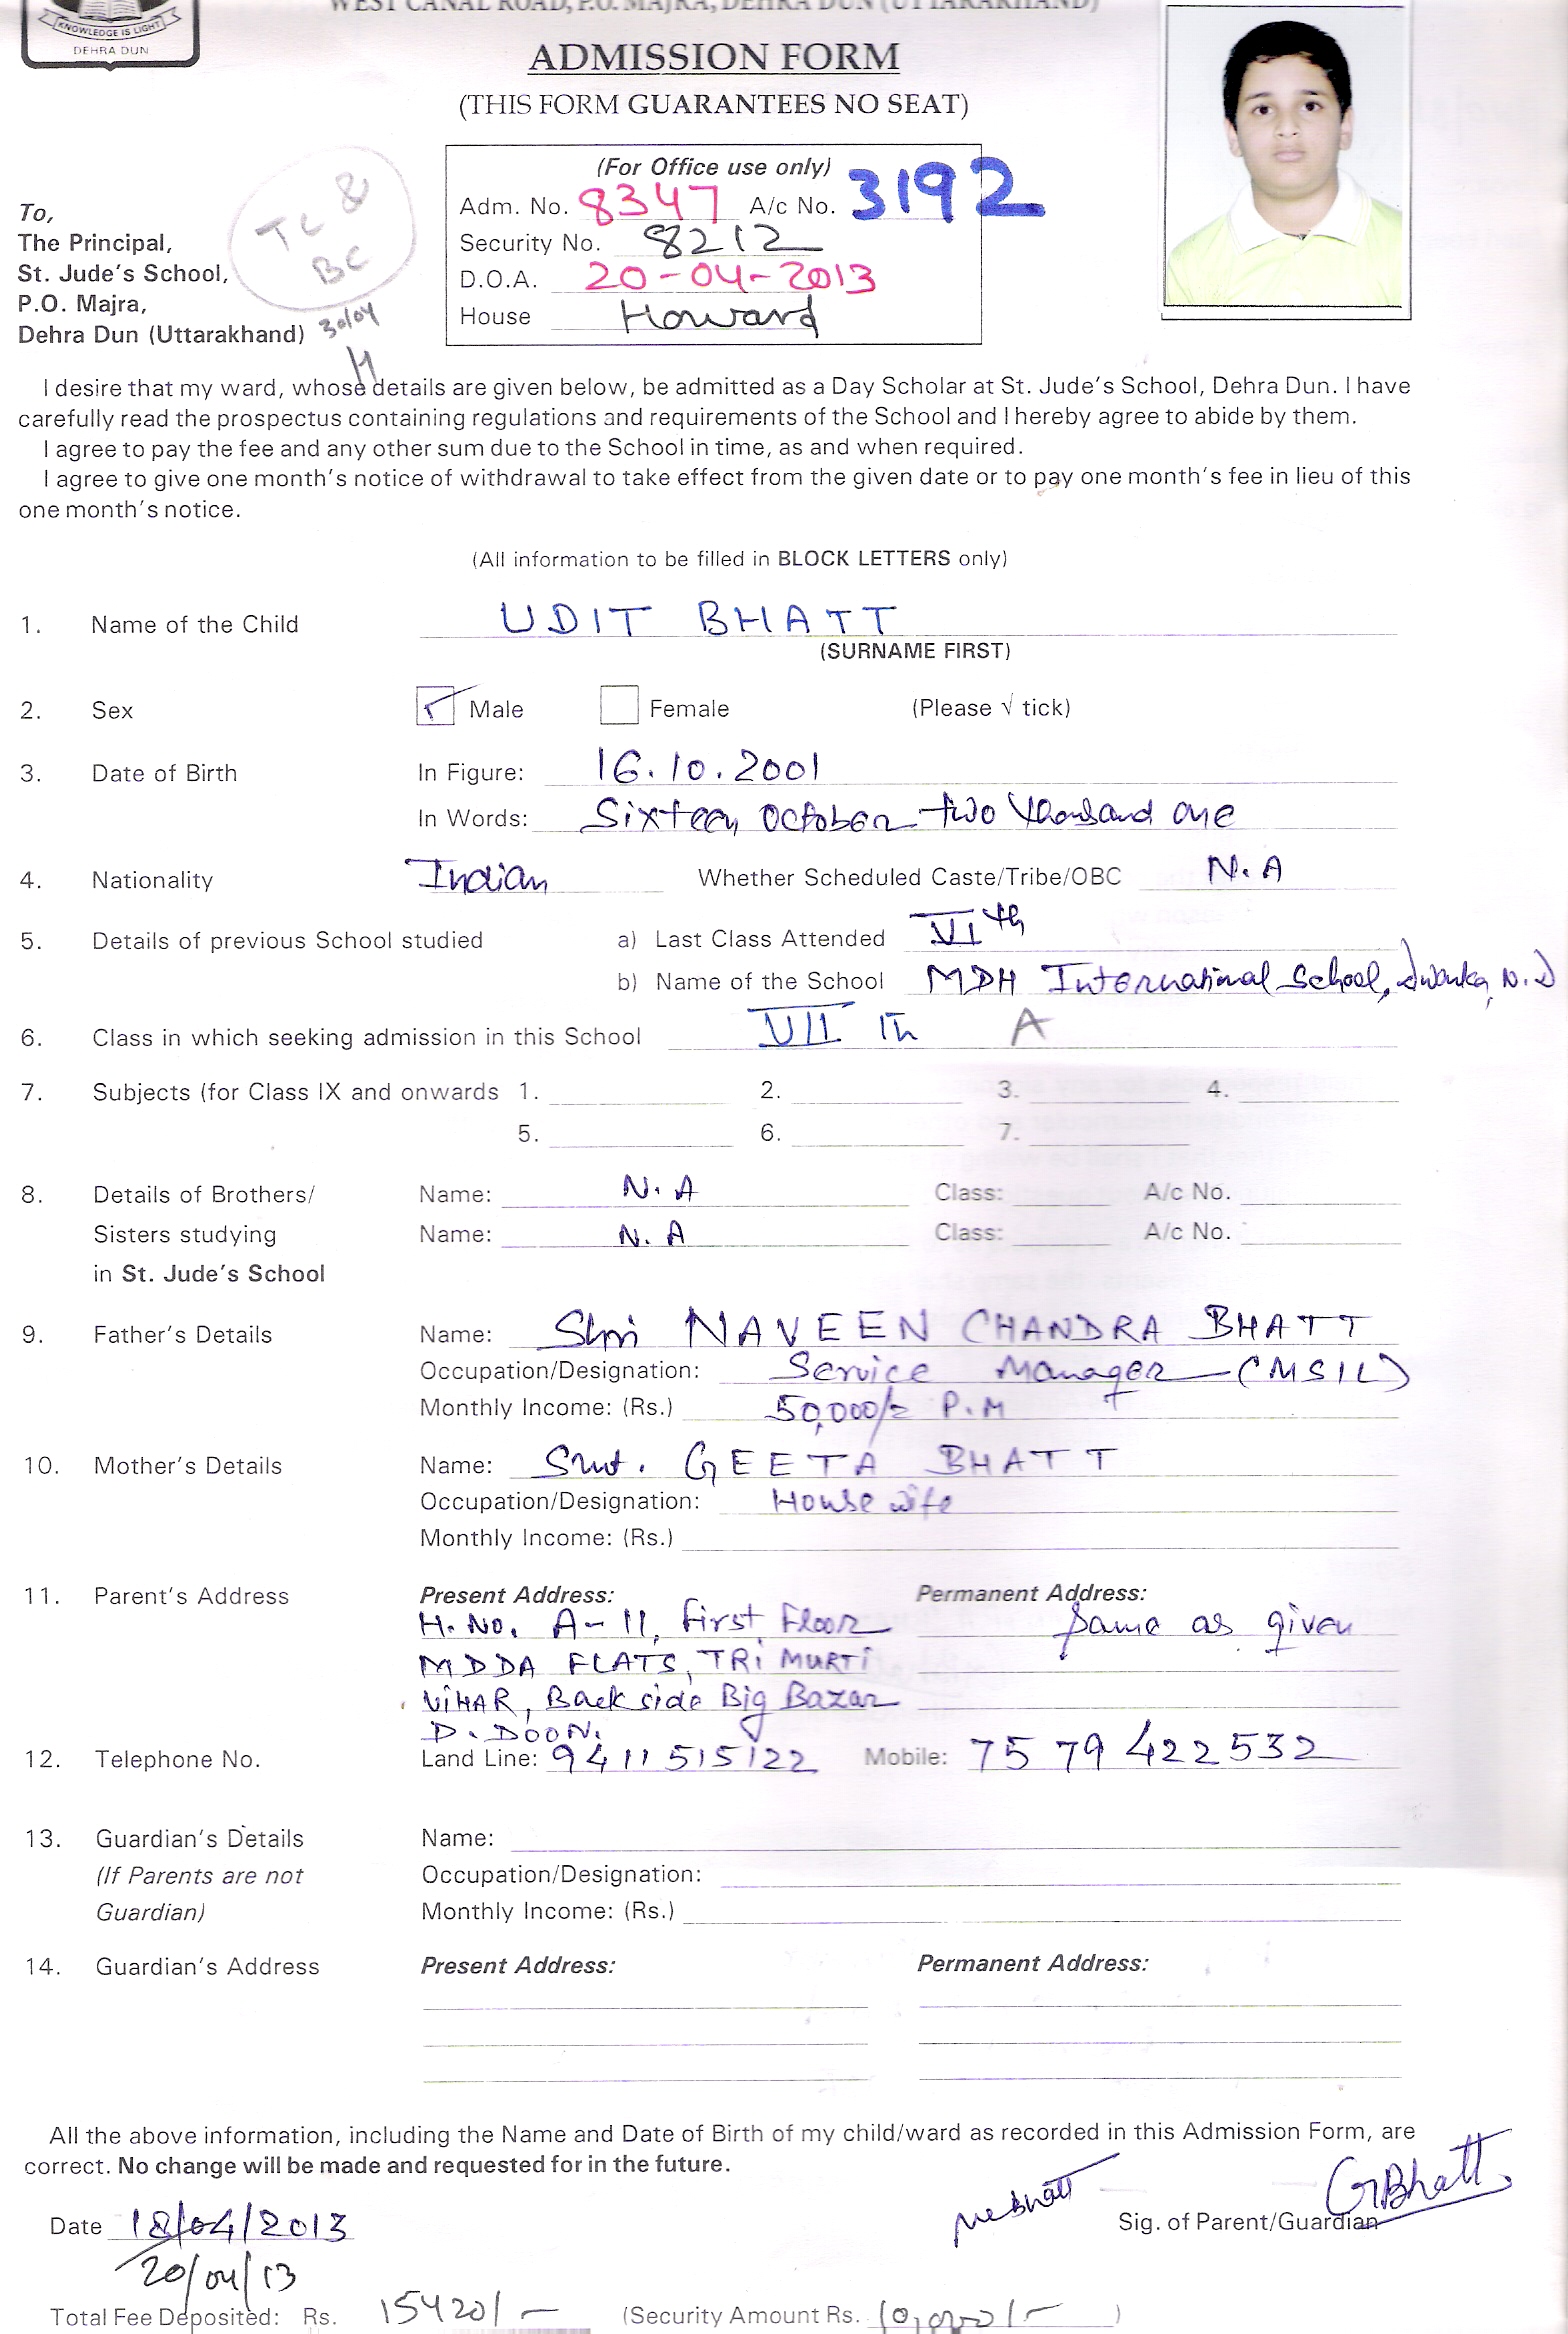 WEST CANAL ROAD, P.O. MAJRA, DEHRA DUN (UTTARAKHAND)
KNOWLEDGE IS LIGHT
DEHRA DUN
ADMISSION FORM
(THIS FORM GUARANTEES NO SEAT)
(For Office use only)
Adm. No. 8347 A/c No. 3192
Security No. 8212
D.O.A. 20-04-2013
House Howard
TC &
BC
30/04
To,
The Principal,
St. Jude's School,
P.O. Majra,
Dehra Dun (Uttarakhand)
I desire that my ward, whose details are given below, be admitted as a Day Scholar at St. Jude's School, Dehra Dun. I have
carefully read the prospectus containing regulations and requirements of the School and I hereby agree to abide by them.
I agree to pay the fee and any other sum due to the School in time, as and when required.
I agree to give one month's notice of withdrawal to take effect from the given date or to pay one month's fee in lieu of this
one month's notice.
(All information to be filled in BLOCK LETTERS only)
1. Name of the Child UDIT BHATT
(SURNAME FIRST)
2. Sex ✓ Male Female (Please √ tick)
3. Date of Birth In Figure: 16.10.2001
In Words: Sixteen October two thousand one
4. Nationality Indian Whether Scheduled Caste/Tribe/OBC N.A
5. Details of previous School studied a) Last Class Attended VIth
b) Name of the School MDH International School, Dwarka, N.D
6. Class in which seeking admission in this School VII th A
7. Subjects (for Class IX and onwards 1. 2. 3. 4.
5. 6. 7.
8. Details of Brothers/ Name: N.A Class: A/c No.
Sisters studying Name: N.A Class: A/c No.
in St. Jude's School
9. Father's Details Name: Shri NAVEEN CHANDRA BHATT
Occupation/Designation: Service Manager (MSIL)
Monthly Income: (Rs.) 50,000/= P.M
10. Mother's Details Name: Smt. GEETA BHATT
Occupation/Designation: House wife
Monthly Income: (Rs.)
11. Parent's Address Present Address: Permanent Address:
H. No. A-11, First Floor Same as given
MDDA FLATS, TRI MURTI
VIHAR, Back side Big Bazar
D. DOON.
12. Telephone No. Land Line: 9411515122 Mobile: 7579422532
13. Guardian's Details Name:
(If Parents are not Occupation/Designation:
Guardian) Monthly Income: (Rs.)
14. Guardian's Address Present Address: Permanent Address:
All the above information, including the Name and Date of Birth of my child/ward as recorded in this Admission Form, are
correct. No change will be made and requested for in the future.
Date 18/04/2013 GBhatt
20/04/13 Sig. of Parent/Guardian
Total Fee Deposited: Rs. 15420/- (Security Amount Rs. 10,000/- )